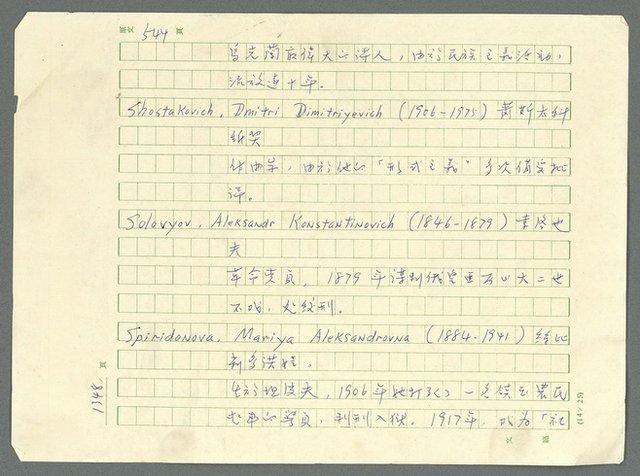 544 頁
烏克蘭最偉大的詩人,由於民族主義活動,
流放達十年。
Shostakovich, Dmitri Dimitriyevich (1906-1975) 蕭斯太科
維契
作曲家,由於他的「形式主義」多次備受批
評。
Solovyov, Aleksandr Konstantinovich (1846-1879) 索洛也
夫
革命黨員,1879年謀刺俄皇亞歷山大二世
不成,處絞刑。
Spiridonova, Mariya Aleksandrovna (1884-1941)
坦波夫,1906年她 一名鎮壓農民
官員,判刑入獄。1917年,成為「社
1348 頁
(14/25)